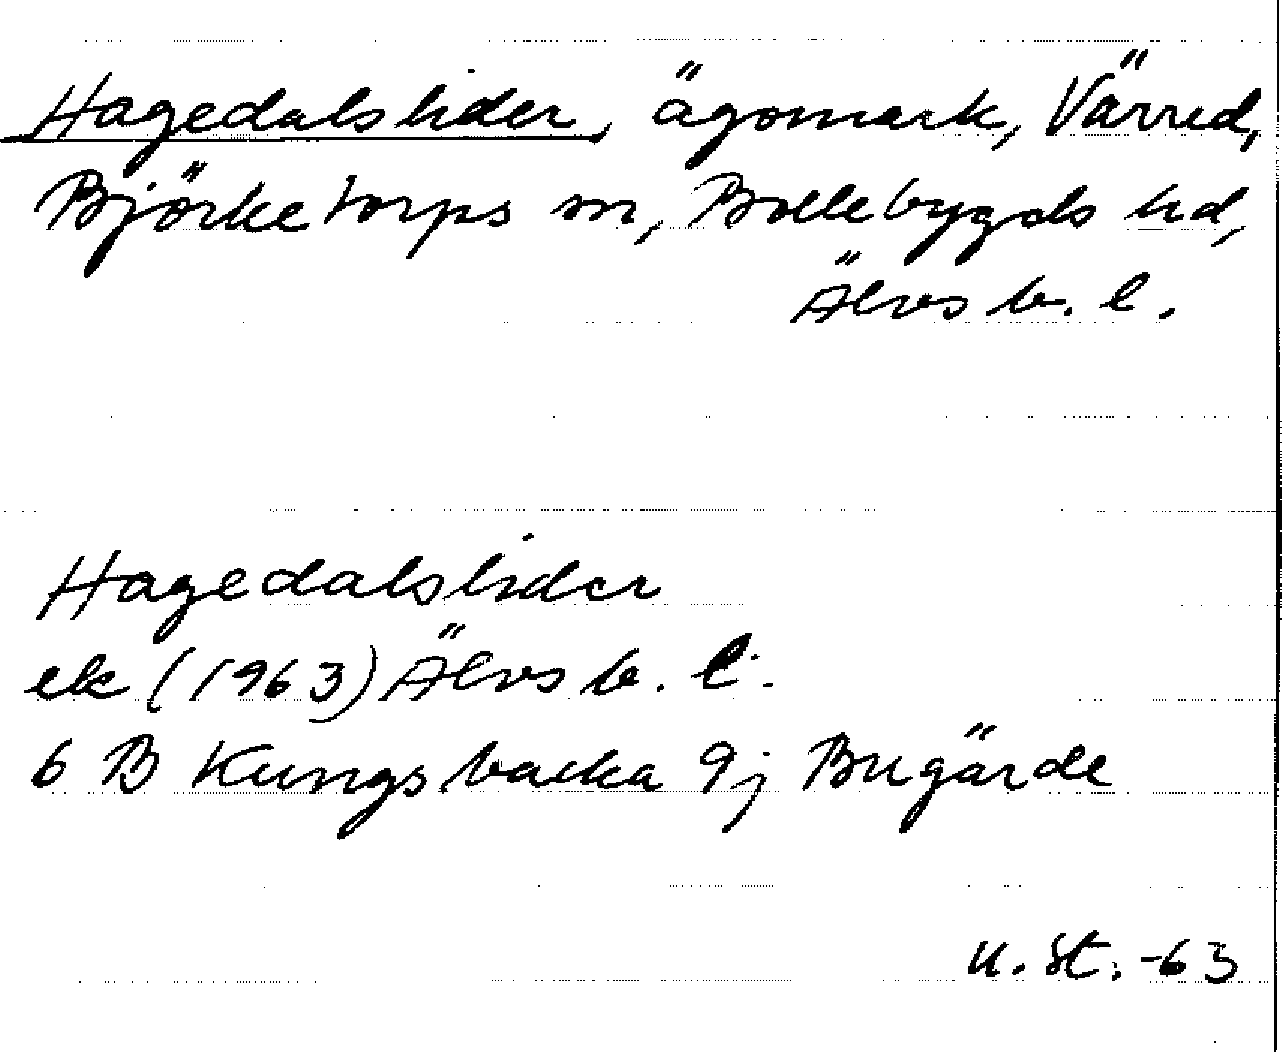 Hagedalslider, ägomark, Värred,
Björketorps sn, Bollebygds hd,
Älvsb. l.
Hagedalslider
ek (1963) Älvsb. l.
6 B Kungsbacka 9j Bugärde
U. St. -63